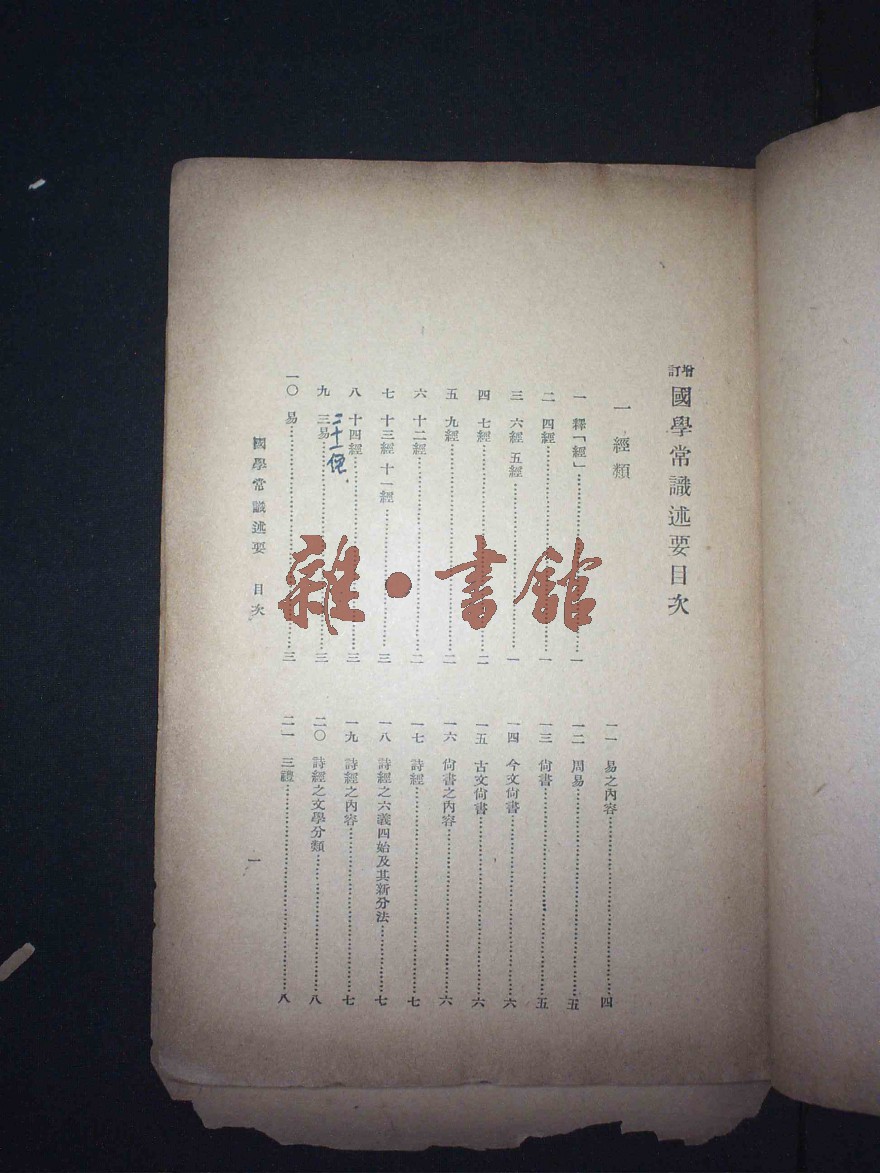 增訂國學常識述要目次
一 經類
一 釋「經」……一
二 四經……一
三 六經 五經……一
四 七經……二
五 九經……二
六 十二經……二
七 十三經 十一經……三
八 十四經……三
二十一經
九 三易……三
一〇 易……三
一一 易之內容……四
一二 周易……五
一三 尙書……五
一四 今文尙書……六
一五 古文尙書……六
一六 尙書之內容……六
一七 詩經……七
一八 詩經之六義四始及其新分法……七
一九 詩經之內容……七
二〇 詩經之文學分類……八
二一 三禮……八
國學常識述要 目次
一
雜·書館